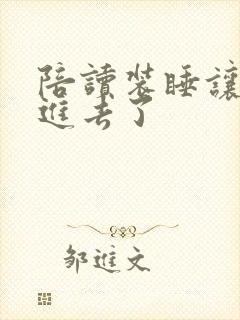 陪讀裝睡讓
進去了
鄒進文